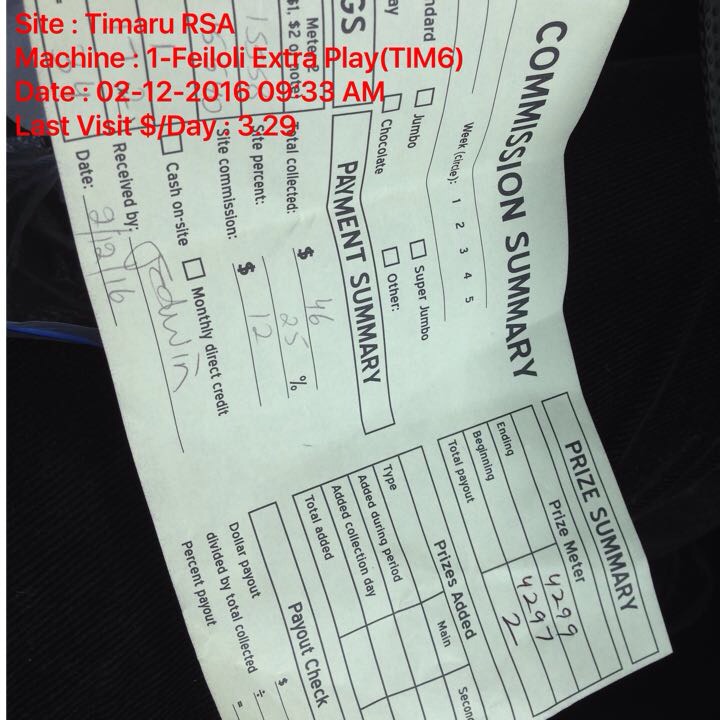 Site : Timaru RSA
Machine : 1-Feiloli Extra Play(TIM6)
Date : 02-12-2016 09:33 AM
Last Visit $/Day : 3.29
COMMISSION SUMMARY
Week (circle): 1 2 3 4 5
Jumbo Super Jumbo
Chocolate Other:
PAYMENT SUMMARY
Total collected: $ 46
Site percent: 25 %
Site commission: $ 12
Cash on-site Monthly direct credit
Received by:
Date: 2/2/16
PRIZE SUMMARY
Prize Meter
Ending 4299
Beginning 4297
Total payout 2
Prizes Added
Type Main
Added during period
Added collection day
Total added
Payout Check
Dollar payout $
divided by total collected ÷
Percent payout =